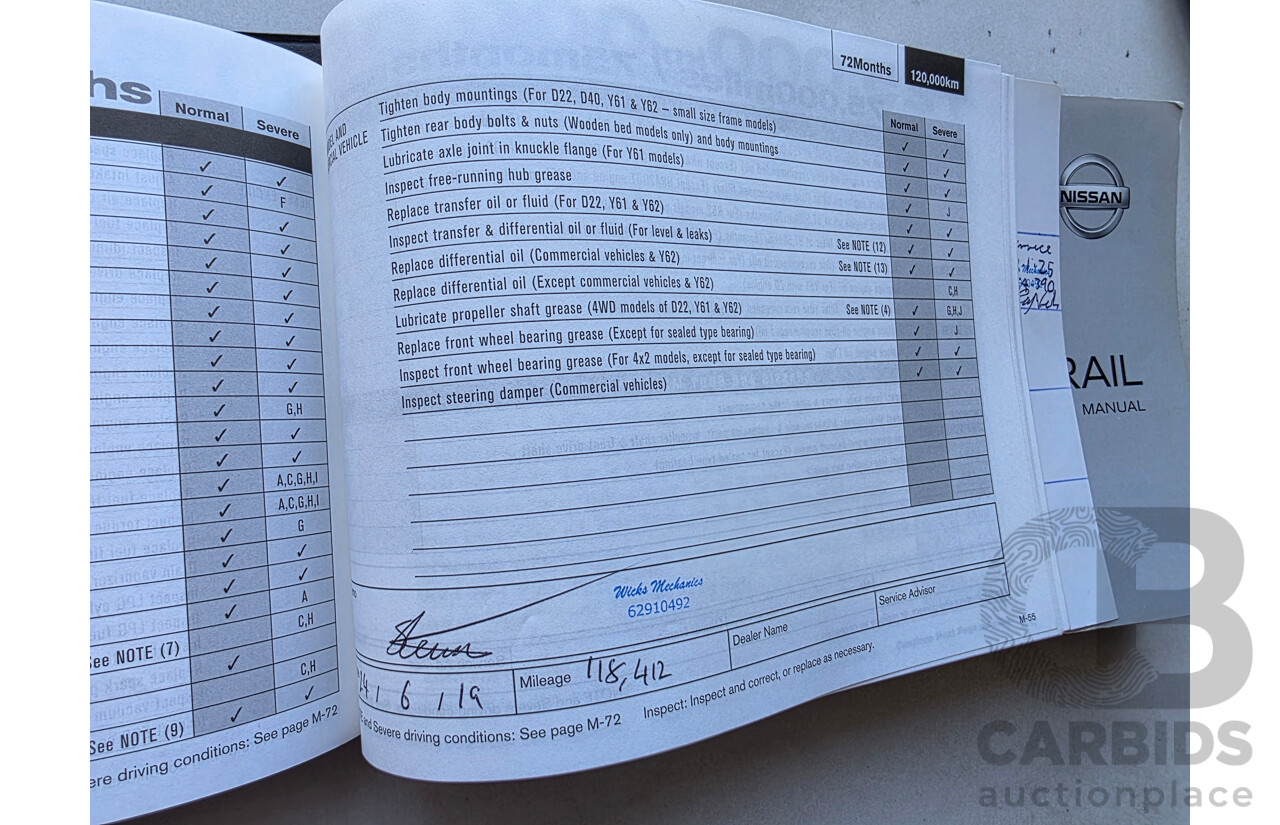 hs
Normal
Severe
✓ ✓
✓ F
✓ ✓
✓ ✓
✓ ✓
✓ ✓
✓ ✓
✓ ✓
✓ ✓
✓ ✓
✓ G,H
✓ ✓
✓ ✓
✓ A,C,G,H,I
✓ A,C,G,H,I
✓ G
✓ ✓
✓ ✓
✓ A
C,H
See NOTE (7) ✓
C,H
See NOTE (9) ✓ ✓
ere driving conditions: See page M-72
72Months
120,000km
Normal
Severe
AND
VEHICLE
Tighten body mountings (For D22, D40, Y61 & Y62 – small size frame models) ✓ ✓
Tighten rear body bolts & nuts (Wooden bed models only) and body mountings ✓ ✓
Lubricate axle joint in knuckle flange (For Y61 models) ✓ ✓
Inspect free-running hub grease ✓ J
Replace transfer oil or fluid (For D22, Y61 & Y62) ✓ ✓
Inspect transfer & differential oil or fluid (For level & leaks) See NOTE (12) ✓ ✓
Replace differential oil (Commercial vehicles & Y62) See NOTE (13) ✓ ✓
Replace differential oil (Except commercial vehicles & Y62) C,H
Lubricate propeller shaft grease (4WD models of D22, Y61 & Y62) See NOTE (4) ✓ G,H,J
Replace front wheel bearing grease (Except for sealed type bearing) ✓ J
Inspect front wheel bearing grease (For 4x2 models, except for sealed type bearing) ✓ ✓
Inspect steering damper (Commercial vehicles) ✓ ✓
Wicks Mechanics
62910492
24 / 6 / 19
Mileage 118,412
Dealer Name
Service Advisor
M-55
and Severe driving conditions: See page M-72
Inspect: Inspect and correct, or replace as necessary.
NISSAN
RAIL
MANUAL
CARBIDS
auctionplace